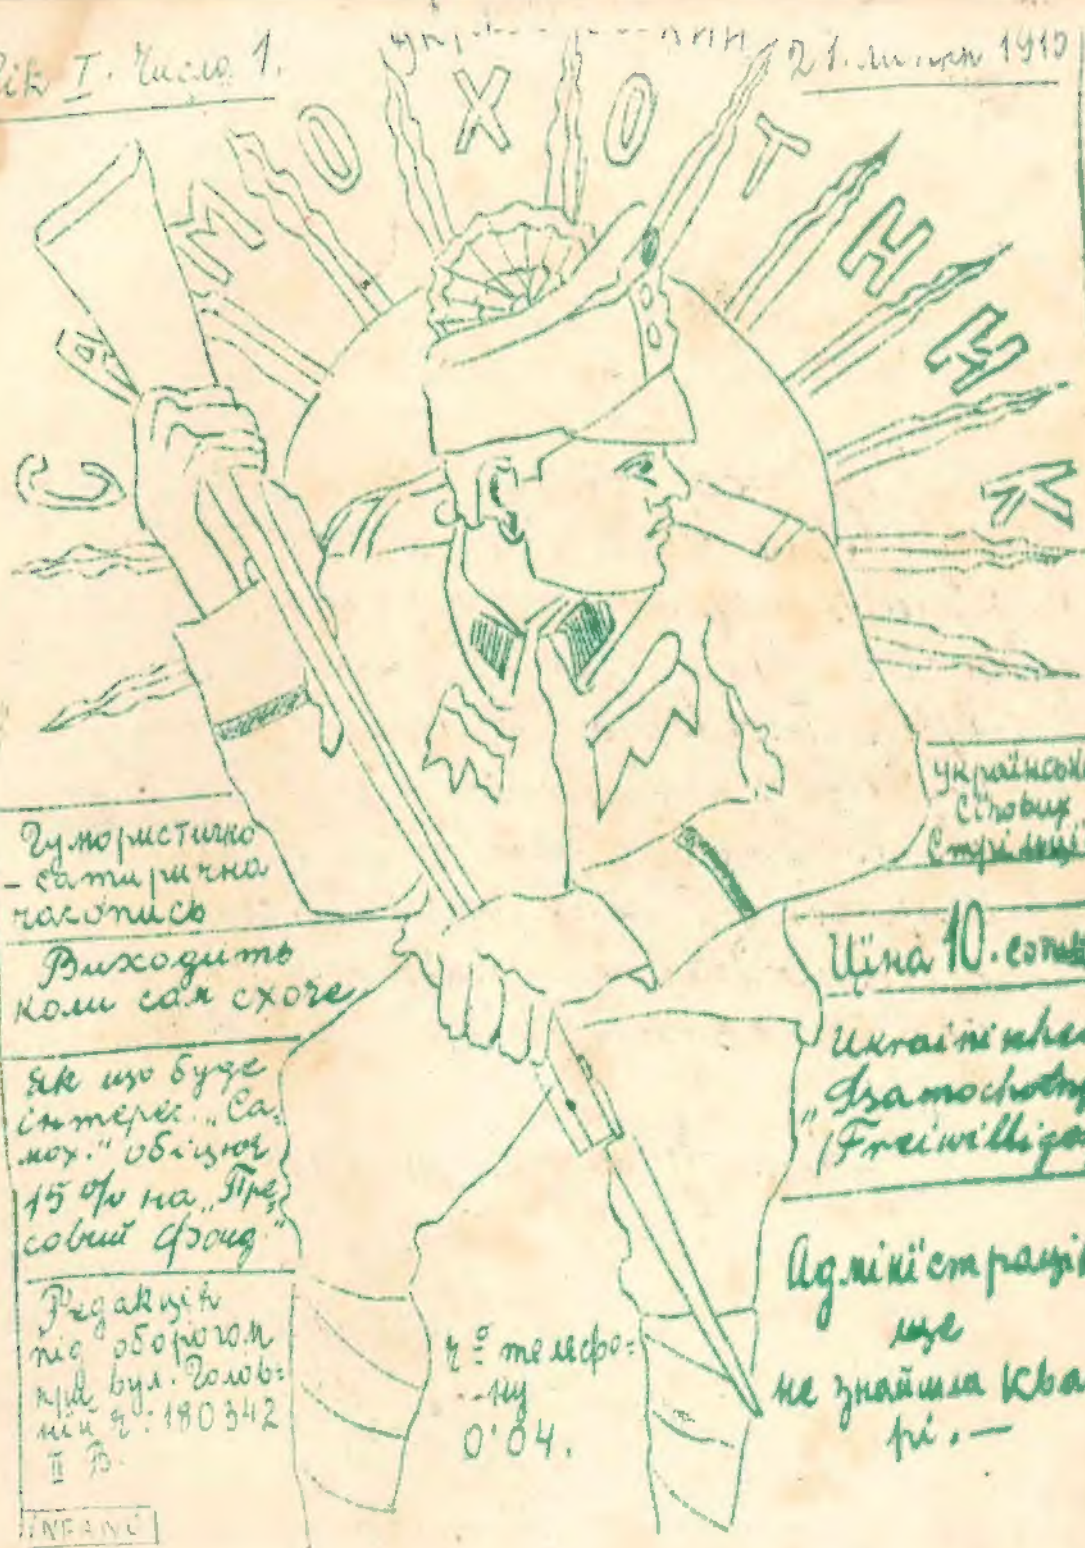 Рік І. Число 1.
21. липня 1915
САМОХОТНИК
Гумористично
- сатирична
часопись
Виходить
коли сам схоче
Як що буде
інтерес „Са-
мох." обіцює
15 % на „Пре-
совий фонд."
Редакція
під оборогом
при вул. Голов=
ній ч: 180342
ІІ В.
ч^о телєфо=
ну
0·04.
українськ
Сїчових
Стрільцї
Цїна 10. сот
Ukraini
„Samochotn
(Freiwillige
Адмінїстрація
ще
не знайшла ква
рі. —